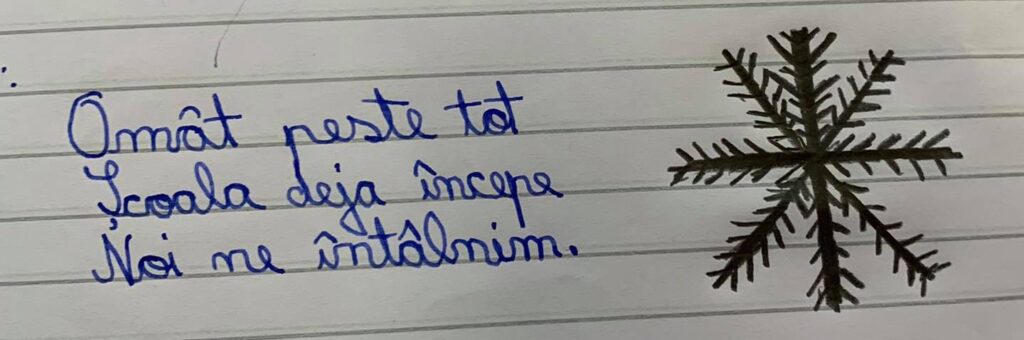 Omăt peste tot
Școala deja începe
Noi ne întâlnim.